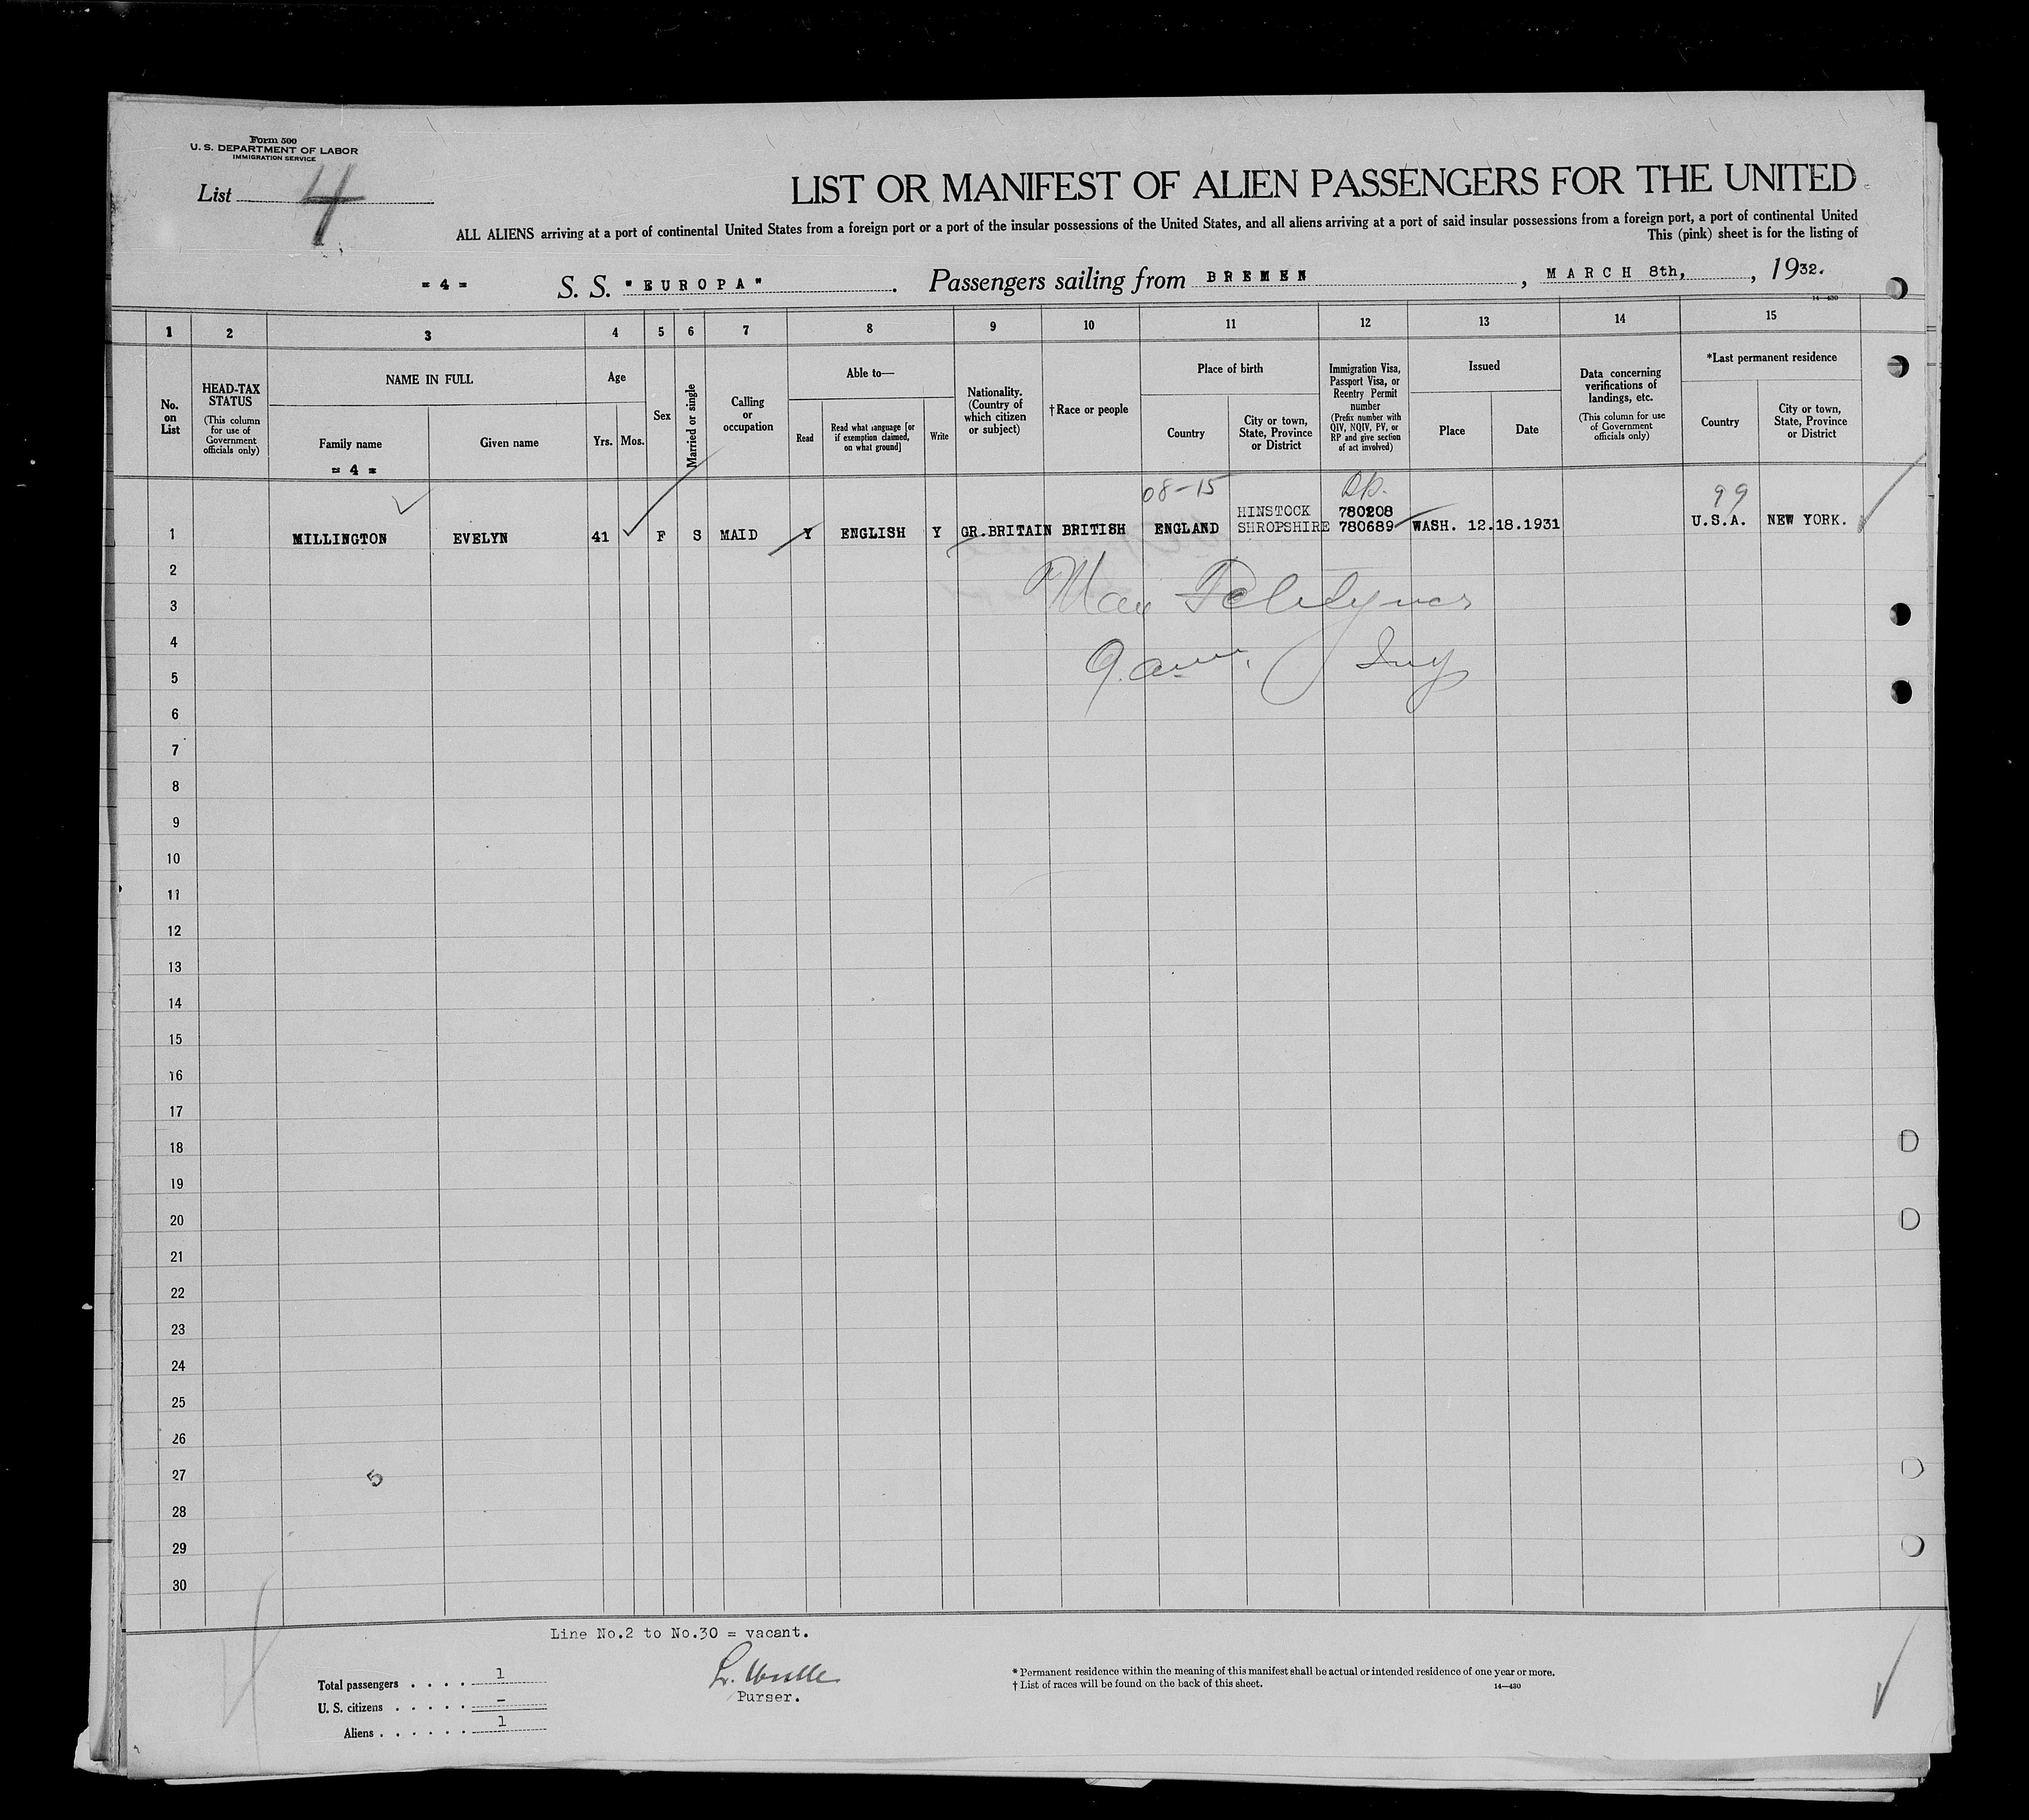 Form 500
U. S. DEPARTMENT OF LABOR
IMMIGRATION SERVICE
List 4
LIST OR MANIFEST OF ALIEN PASSENGERS FOR THE UNITED
ALL ALIENS arriving at a port of continental United States from a foreign port or a port of the insular possessions of the United States, and all aliens arriving at a port of said insular possessions from a foreign port, a port of continental United
This (pink) sheet is for the listing of
= 4 = S. S. "EUROPA". Passengers sailing from BREMEN, MARCH 8th, , 1932.
14—430
1 2 3 4 5 6 7 8 9 10 11 12 13 14 15
No. on List
HEAD-TAX STATUS (This column for use of Government officials only)
NAME IN FULL
Family name
Given name
= 4 =
Age
Yrs. Mos.
Sex
Married or single
Calling or occupation
Able to—
Read
Read what language [or if exemption claimed, on what ground]
Write
Nationality. (Country of which citizen or subject)
† Race or people
Place of birth
Country
City or town, State, Province or District
Immigration Visa, Passport Visa, or Reentry Permit number (Prefix number with QIV, NQIV, PV, or RP and give section of act involved)
Issued
Place
Date
Data concerning verifications of landings, etc. (This column for use of Government officials only)
*Last permanent residence
Country
City or town, State, Province or District
08-15 99
HINSTOCK 780208
1 MILLINGTON EVELYN 41 F S MAID Y ENGLISH Y GR.BRITAIN BRITISH ENGLAND SHROPSHIRE 780689 WASH. 12.18.1931 U.S.A. NEW YORK.
2
3
4
5
6
7
8
9
10
11
12
13
14
15
16
17
18
19
20
21
22
23
24
25
26
27 5
28
29
30
Line No.2 to No.30 = vacant.
Total passengers . . . . 1
U. S. citizens . . . . . –
Aliens . . . . . . 1
Purser.
* Permanent residence within the meaning of this manifest shall be actual or intended residence of one year or more.
† List of races will be found on the back of this sheet.
14—430